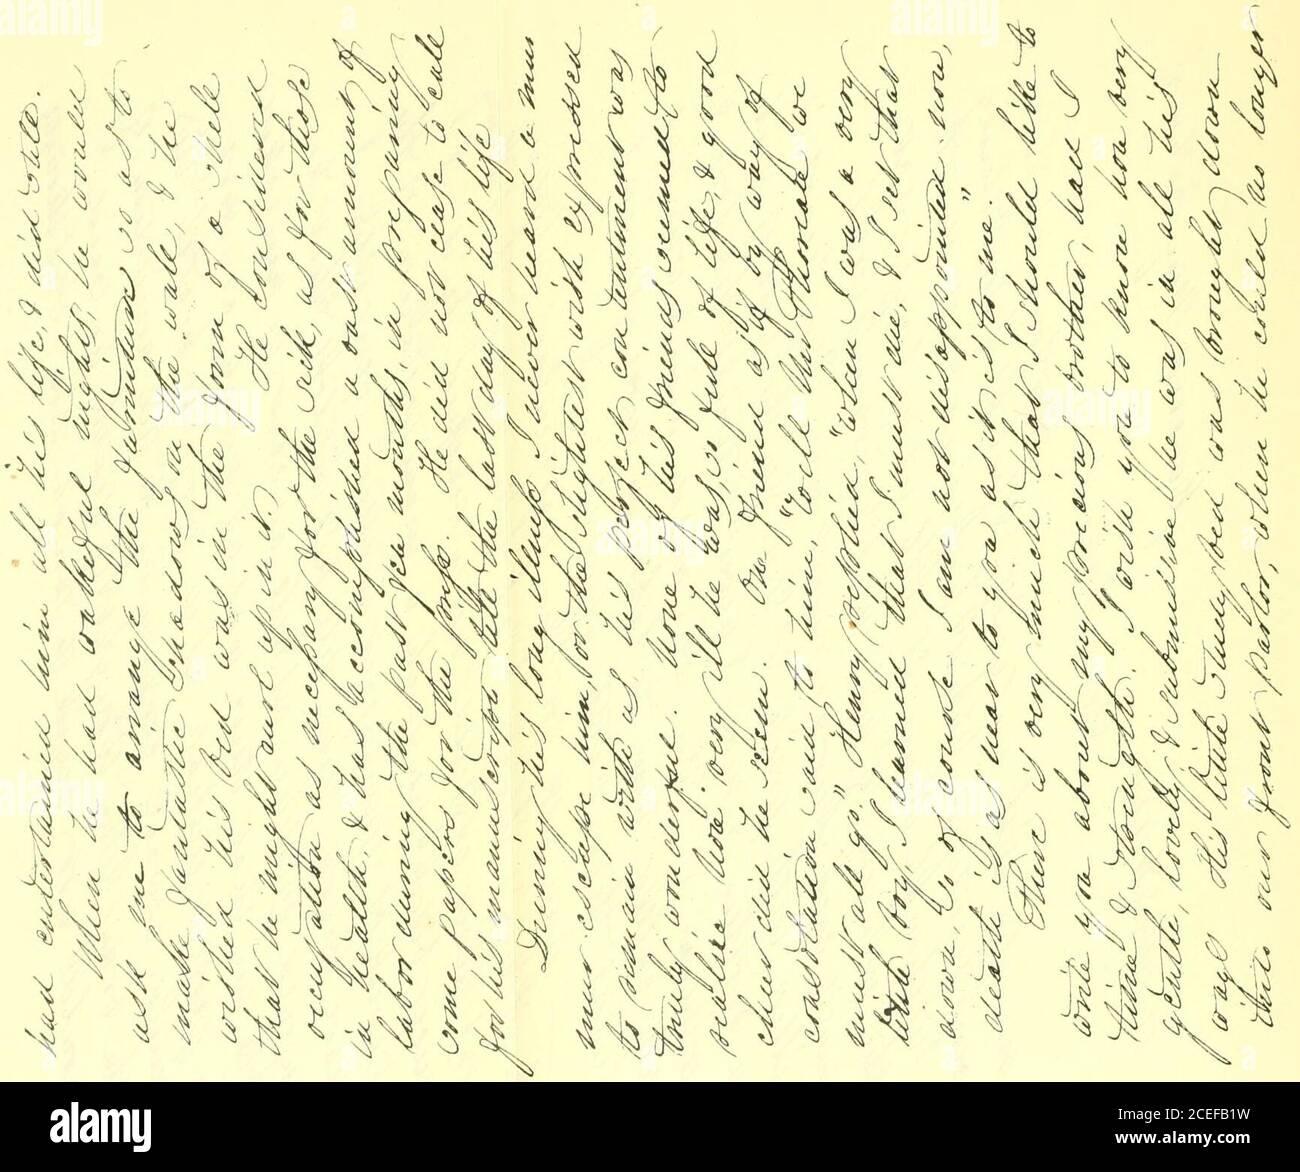 had entertained him all his life, & did still.
When he had wakeful nights, he would
ask me to arrange the furniture so as to
make fantastic shadows on the wall, & he
wished his bed was in the form of a shell
that he might curl up in it. He considered
occupation as necessary for the sick, as for those
in health, & has accomplished a vast amount of
labor during the past few months, in preparing
some papers for the press. He did not cease to call
for his manuscript till the last day of his life
During his long illness I never heard a mur
mur escape him, or the slightest wish expressed
to remain with us, his perfect contentment was
truly wonderful. None of his friends seemed to
realise how very ill he was, so full of life, & good
cheer did he seem. One friend as if by way of
consolation said to him, "Well Mr Thoreau we
must all go." Henry replied, "when I was a very
little boy, I learned that I must die, & I set that
down, so of course I am not disappointed now,
death is as near to you as it is to me."
There is very much that I should like to
write you about my precious brother, had I
time & strength. I wish you to know how very
gentle, lovely, & submissive he was in all his
ways. His little study bed was brought down
into our front parlor, when he could no longer
alamy
Image ID: 2CEFB1W
www.alamy.com